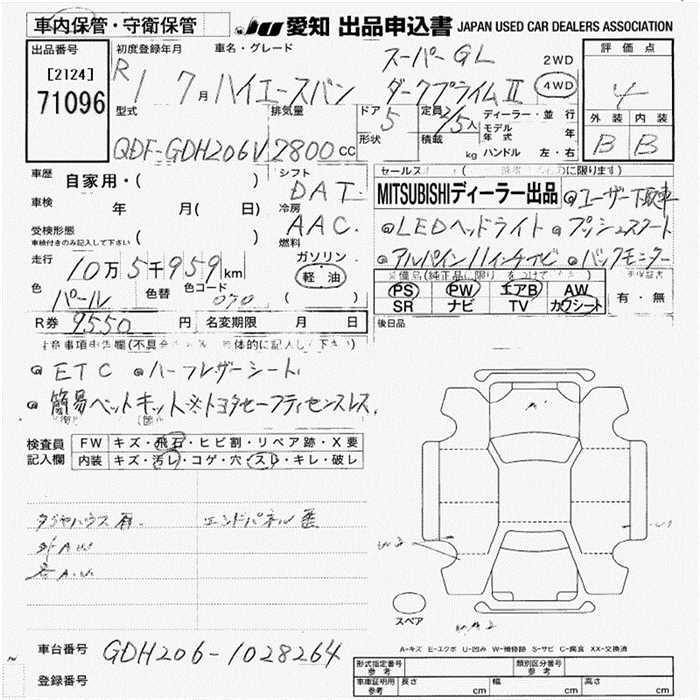 車内保管・守衛保管
JU 愛知 出品申込書 JAPAN USED CAR DEALERS ASSOCIATION
出品番号
[2124]
71096
初度登録年月
R1 7月
車名・グレード
ハイエースバン
スーパーGL
ダークプライムⅡ
2WD
4WD
評価点
4
外装 内装
B B
型式
QDF-GDH206V
排気量
2800cc
ドア 5
形状
定員 2/5人
積載 kg
ディーラー・並行
モデル年式 年
ハンドル 左・右
車歴
自家用・( )
シフト
DAT
セールス
MITSUBISHIディーラー出品 @ユーザー下取車
車検
年 月( )
冷房
AAC
@LEDヘッドライト @プッシュスタート
受検形態
車検付きのみ記入して下さい
( )
燃料
ガソリン
軽油
( )
@アルパイン11インチナビ @バックモニター
走行
10万5千959km
色
パール
色替
色コード
070
PS PW エアB AW
SR ナビ TV カワシート
有・無
R券 9550円 名変期限 月 日
後日品
@ETC @ハーフレザーシート
@簡易ベットキット ※トヨタセーフティセンスレス
検査員
記入欄
FW キズ・飛石・ヒビ割・リペア跡・X要
内装 キズ・汚レ・コゲ・穴・スレ・キレ・破レ
タイヤハウス エンドパネル
A W3 W1 W2
スペア
A-キズ E-エクボ U-凹み W-補修跡 S-サビ C-腐食 XX-交換済
車台番号 GDH206-1028264
登録番号
形式指定番号 参考 類別区分番号 参考
車庫証明用 参考 長さ cm 幅 cm 高さ cm